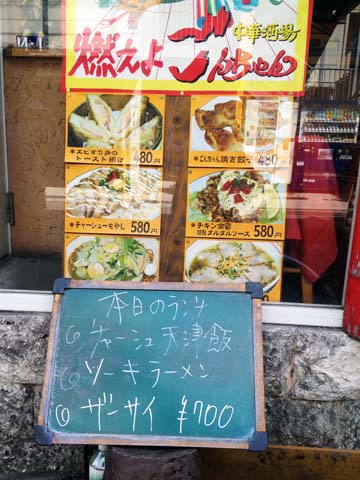 中華酒場
燃えよ
ごんちゃん
*エビすり身の
トースト揚げ
480円
*ごんちゃん焼き餃子 480
*チャーシューもやし
580円
*チキン南蛮
特製タルタルソース 580円
本日のランチ
◎ チャーシュ天津飯
◎ ソーキラーメン
◎ ザーサイ ¥700